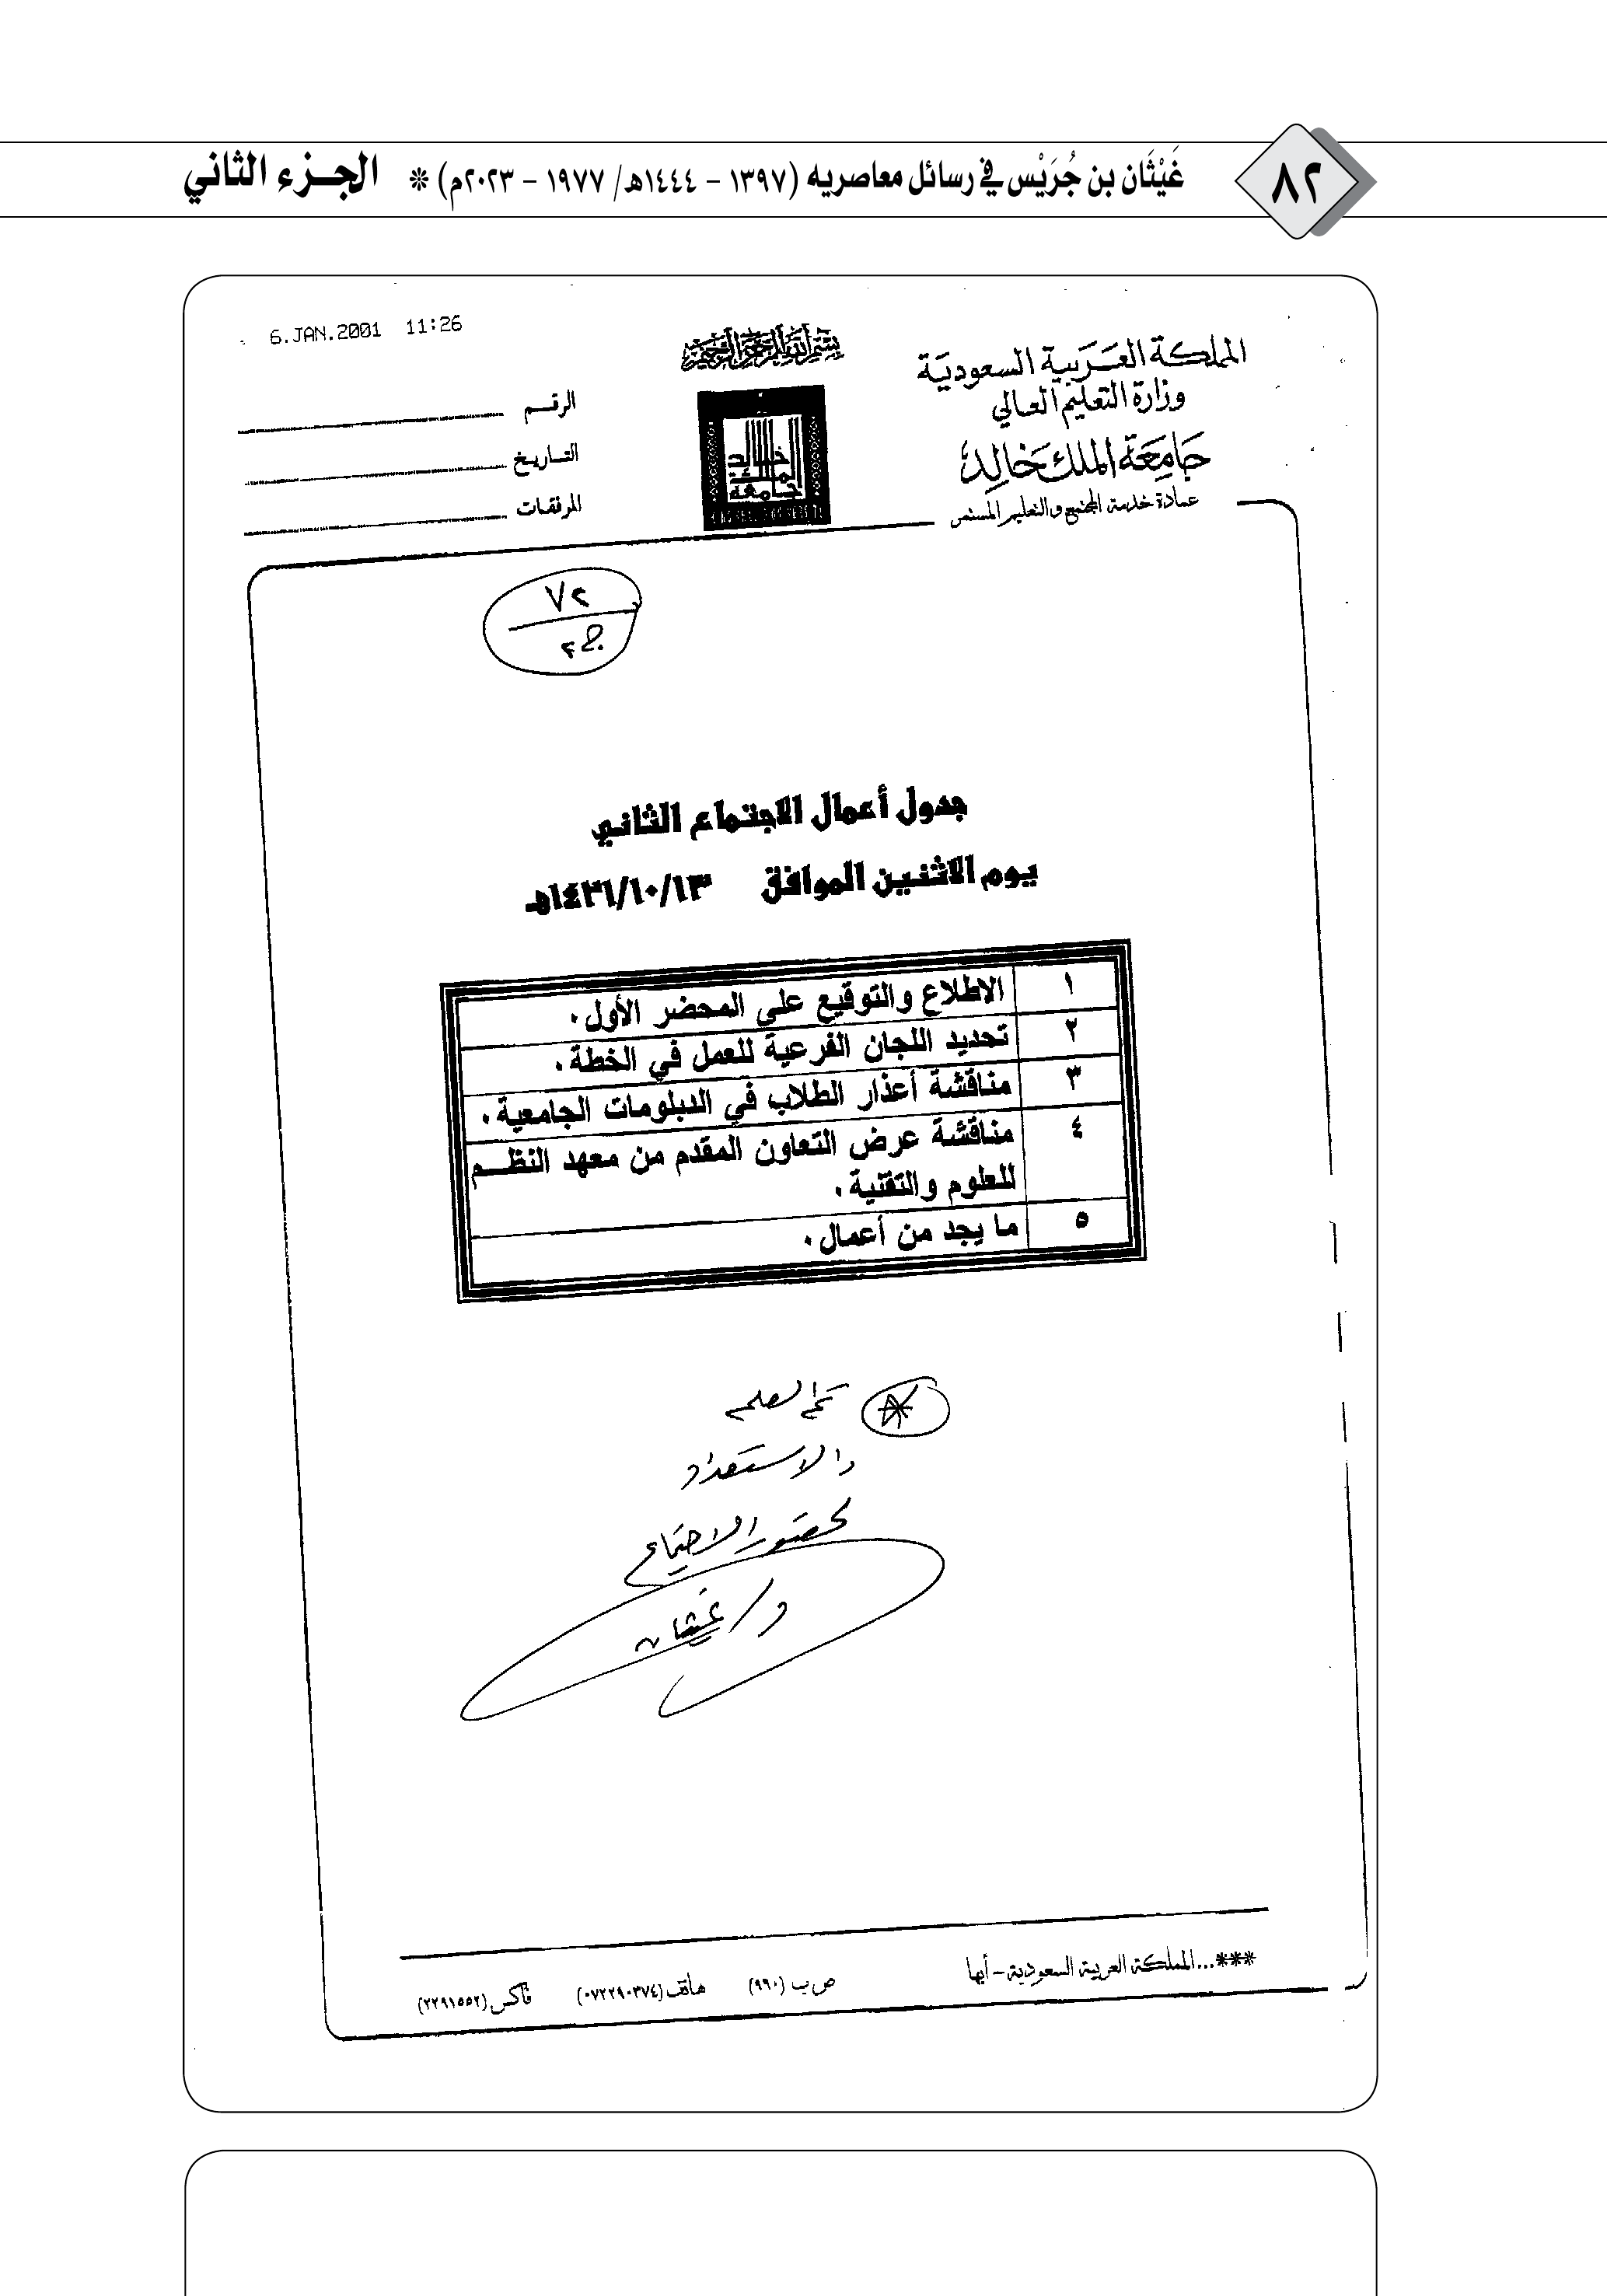 ٨٢
غَيْثَان بن جُرَيْس في رسائل معاصريه (١٣٩٧ – ١٤٤٤هـ/ ١٩٧٧ – ٢٠٢٣م) * الجزء الثاني
6.JAN.2001 11:26
بسم الله الرحمن الرحيم
المملكة العربية السعودية
وزارة التعليم العالي
جامعة الملك خالد
عمادة خدمة المجتمع والتعليم المستمر
جامعة الملك خالد
الرقم
التاريخ
المرفقات
٧٢
جدول أعمال الاجتماع الثاني
يوم الاثنين الموافق ١٤٢١/١٠/١٣هـ
١ الاطلاع والتوقيع على المحضر الأول.
٢ تحديد اللجان الفرعية للعمل في الخطة.
٣ مناقشة أعذار الطلاب في الدبلومات الجامعية.
٤ مناقشة عرض التعاون المقدم من معهد النظم
للعلوم والتقنية.
٥ ما يجد من أعمال.
تم العلم
والاستعداد
لحضور الاجتماع
د/ غيثان
***...المملكة العربية السعودية - أبها ص ب (٩٩٠) هاتف (٠٧٢٢٩٠٣٧٤) فاكس (٢٢٩١٥٥٢)